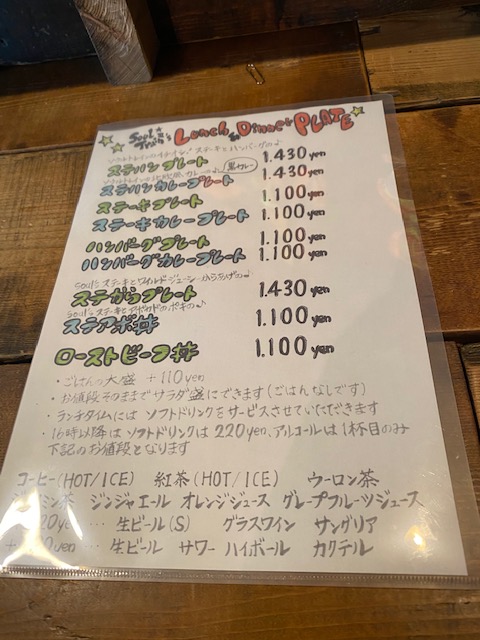 Soul Train's Lunch & Dinner PLATE
ステハンプレート 1.430 yen
ステハンカレープレート 黒カレー 1.430 yen
ステーキプレート 1.100 yen
ステーキカレープレート 1.100 yen
ハンバーグプレート 1.100 yen
ハンバーグカレープレート 1.100 yen
Soul's ステーキとワイルドジューシーからあげの♪
ステからプレート 1.430 yen
Soul's ステーキとアボカドのポキの♪
ステアボ丼 1.100 yen
ローストビーフ丼 1.100 yen
・ごはんの大盛 +110 yen
・お値段そのままでサラダ盛にできます(ごはんなしです)
・ランチタイムにはソフトドリンクをサービスさせていただきます
・16時以降はソフトドリンクは220 yen、アルコールは1杯目のみ
下記のお値段となります
コーヒー(HOT/ICE) 紅茶(HOT/ICE) ウーロン茶
ジャスミン茶 ジンジャエール オレンジジュース グレープフルーツジュース
20 yen … 生ビール(S) グラスワイン サングリア
+ 0 yen … 生ビール サワー ハイボール カクテル